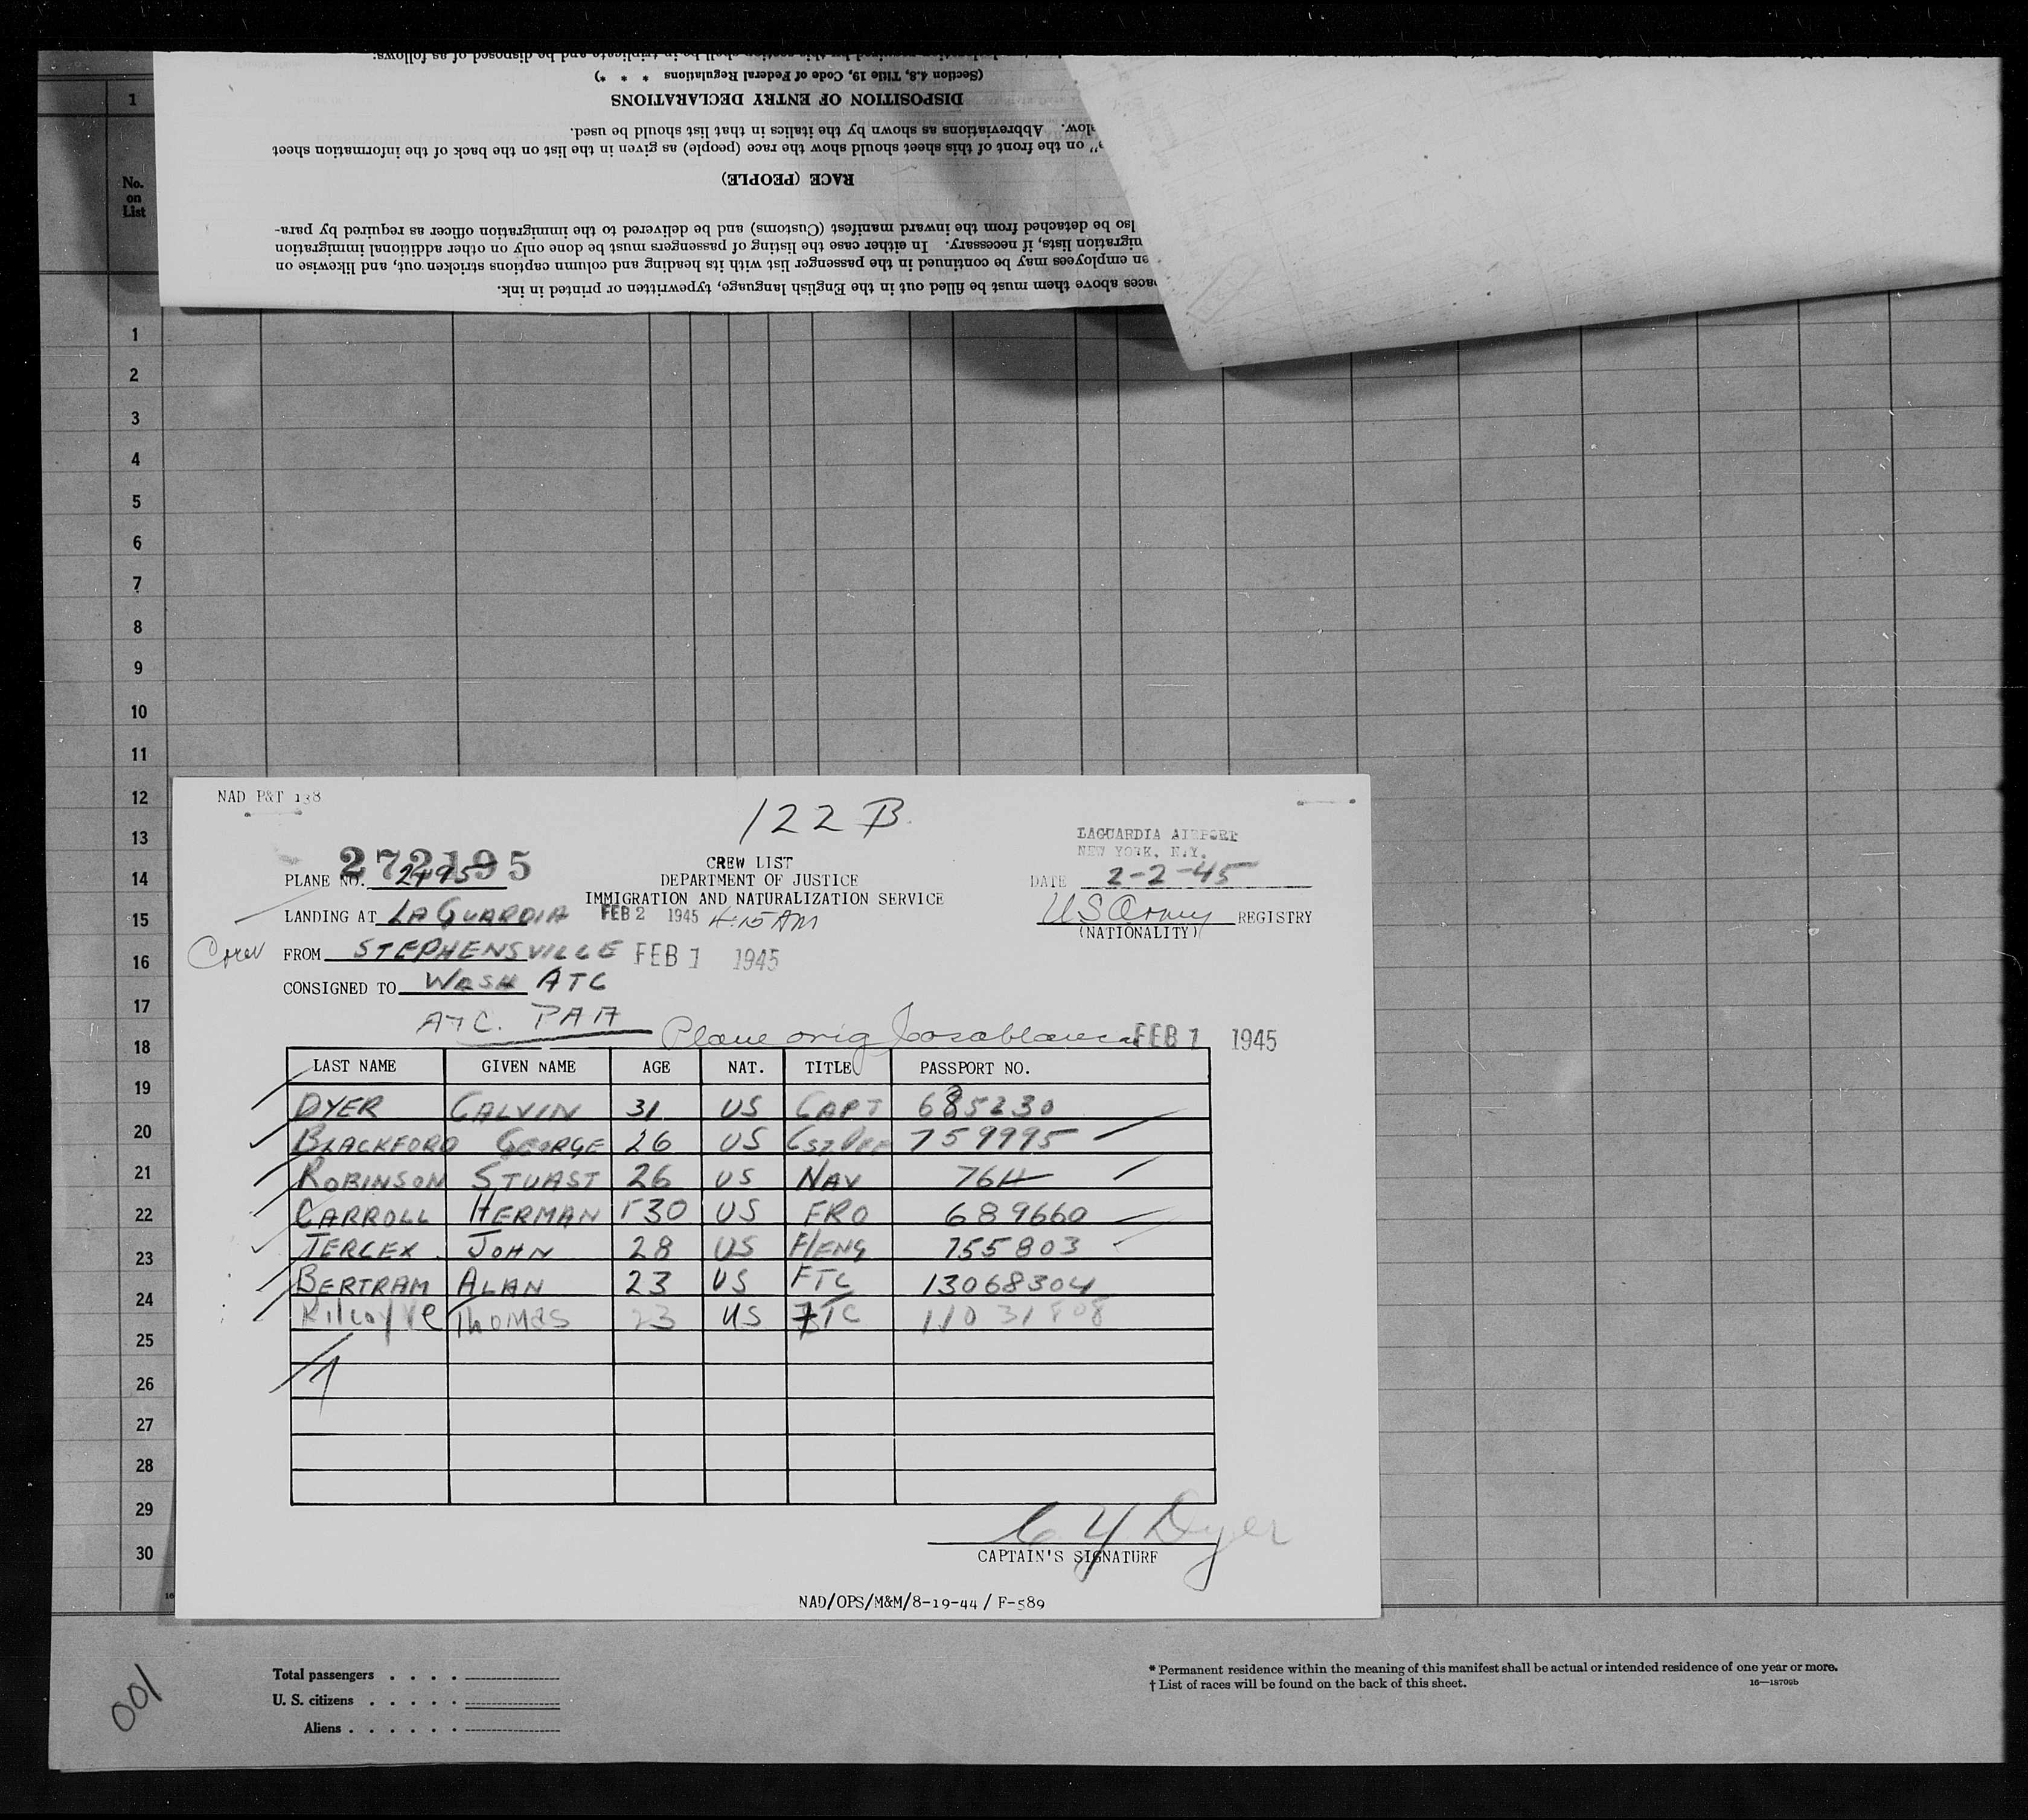 shall be in triplicate and be disposed of as follows:
(Section 4.8, Title 19, Code of Federal Regulations * * *)
DISPOSITION OF ENTRY DECLARATIONS
low. Abbreviations as shown by the italics in that list should be used.
e" on the front of this sheet should show the race (people) as given in the list on the back of the information sheet
RACE (PEOPLE)
lso be detached from the inward manifest (Customs) and be delivered to the immigration officer as required by para-
migration lists, if necessary. In either case the listing of passengers must be done only on other additional immigration
en employees may be continued in the passenger list with its heading and column captions stricken out, and likewise on
paces above them must be filled out in the English language, typewritten or printed in ink.
1
No.
on
List
1
2
3
4
5
6
7
8
9
10
11
12
13
14
15
16
17
18
19
20
21
22
23
24
25
26
27
28
29
30
NAD P&T 138
122 B
LAGUARDIA AIRPORT
NEW YORK, N.Y.
272195
CREW LIST
PLANE NO. 2195
DEPARTMENT OF JUSTICE
DATE 2-2-45
IMMIGRATION AND NATURALIZATION SERVICE
LANDING AT LAGUARDIA FEB 2 1945 4:15 AM
US Army REGISTRY
(NATIONALITY)
FROM STEPHENSVILLE FEB 1 1945
CONSIGNED TO WASH ATC
ATC. PAA
Plane orig Casablanca FEB 1 1945
LAST NAME GIVEN NAME AGE NAT. TITLE PASSPORT NO.
DYER CALVIN 31 US CAPT 685230
BLACKFORD GEORGE 26 US 759995
ROBINSON STUAST 26 US NAV 764
CARROLL HERMAN 30 US FRO 689660
JOHN 28 US F/ENG 755803
BERTRAM ALAN 23 US FTC 13068304
Thomas 23 US FTC
C Y Dyer
CAPTAIN'S SIGNATURE
NAD/OPS/M&M/8-19-44 / F-589
16
Total passengers . . . .
U. S. citizens . . . . .
Aliens . . . . . .
* Permanent residence within the meaning of this manifest shall be actual or intended residence of one year or more.
† List of races will be found on the back of this sheet.
16—18709b
100